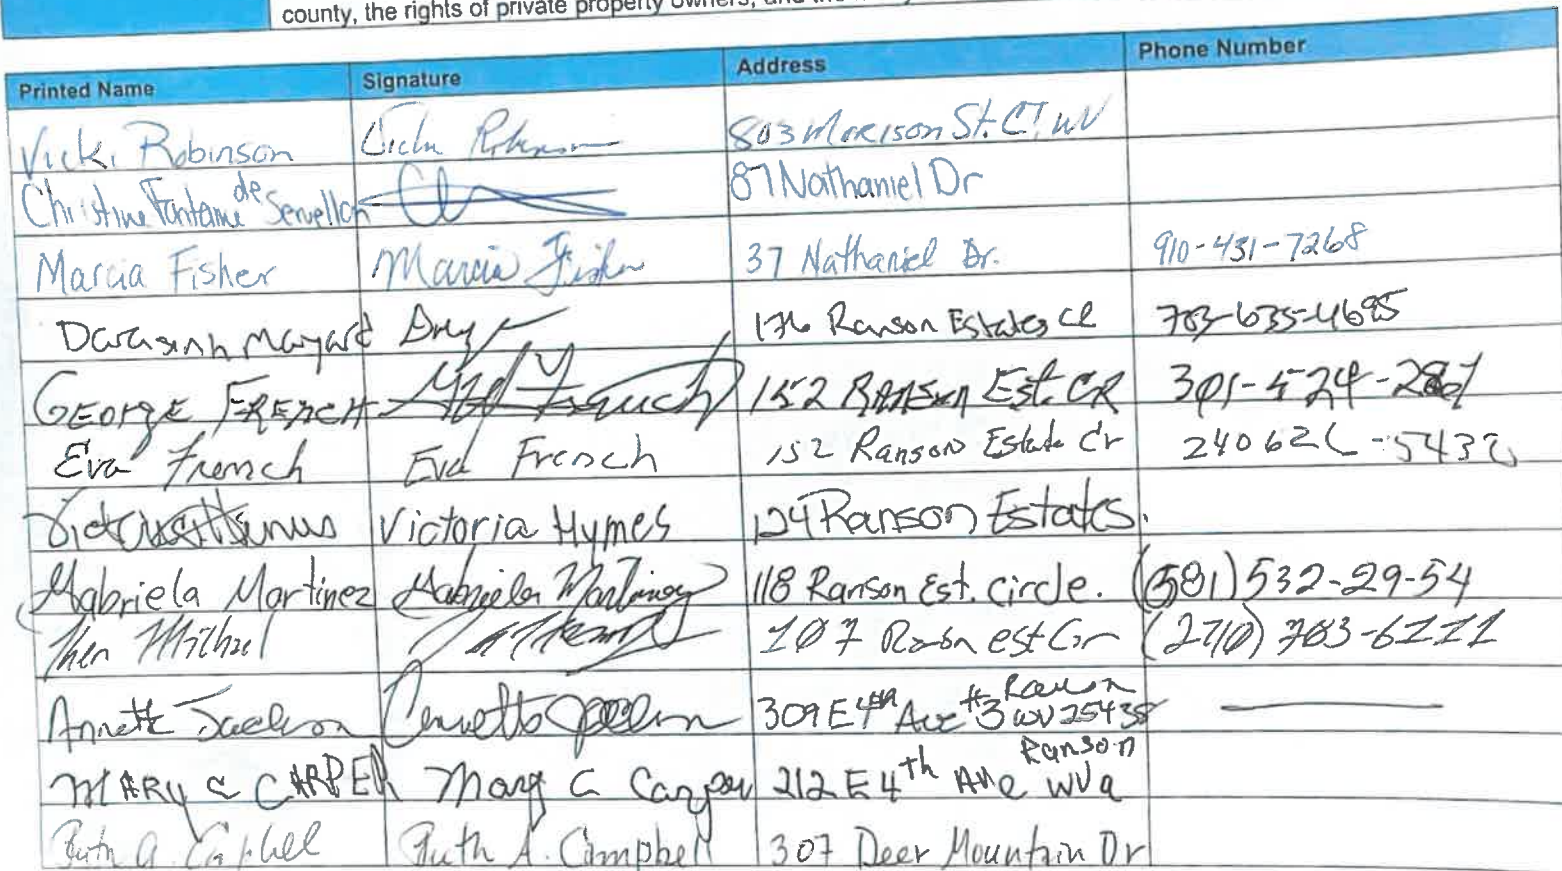 county, the rights of private property owners, and the
Printed Name Signature Address Phone Number
Vicki Robinson Vicki Robinson 803 Morison St. CT WV
Christine Fontaine de Servellon 87 Nathaniel Dr
Marcia Fisher Marcia Fisher 37 Nathaniel Dr. 910-431-7268
176 Ranson Estates Cl 703-635-4695
GEORGE FRENCH French 152 RANSON Est. CR 301-524-
Eva French Eva French 152 Ranson Estate Cr 240
Victoria Hymes 124 Ranson Estates.
Gabriela Martinez Gabriela Martinez 118 Ranson Est. circle. (681) 532-29-54
107 est
Annette Jackson Annette Jackson 309 E 4th Ave #3 Ranson WV 25438
MARY C CARPER Mary C Carper 212 E 4th Ave Ranson WVa
Ruth A. Ruth A. Campbell 307 Deer Mountain Dr